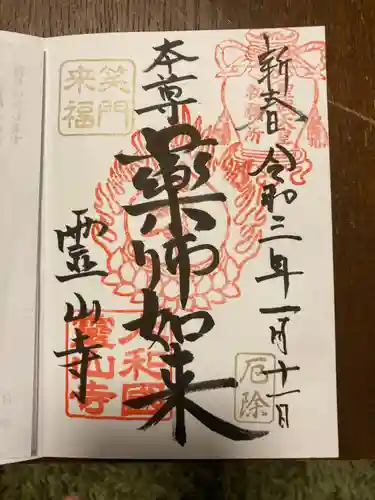 新春 令和三年一月十一日
本尊
薬師如来
靈山寺
笑門
来福
厄除
大和國
靈山寺